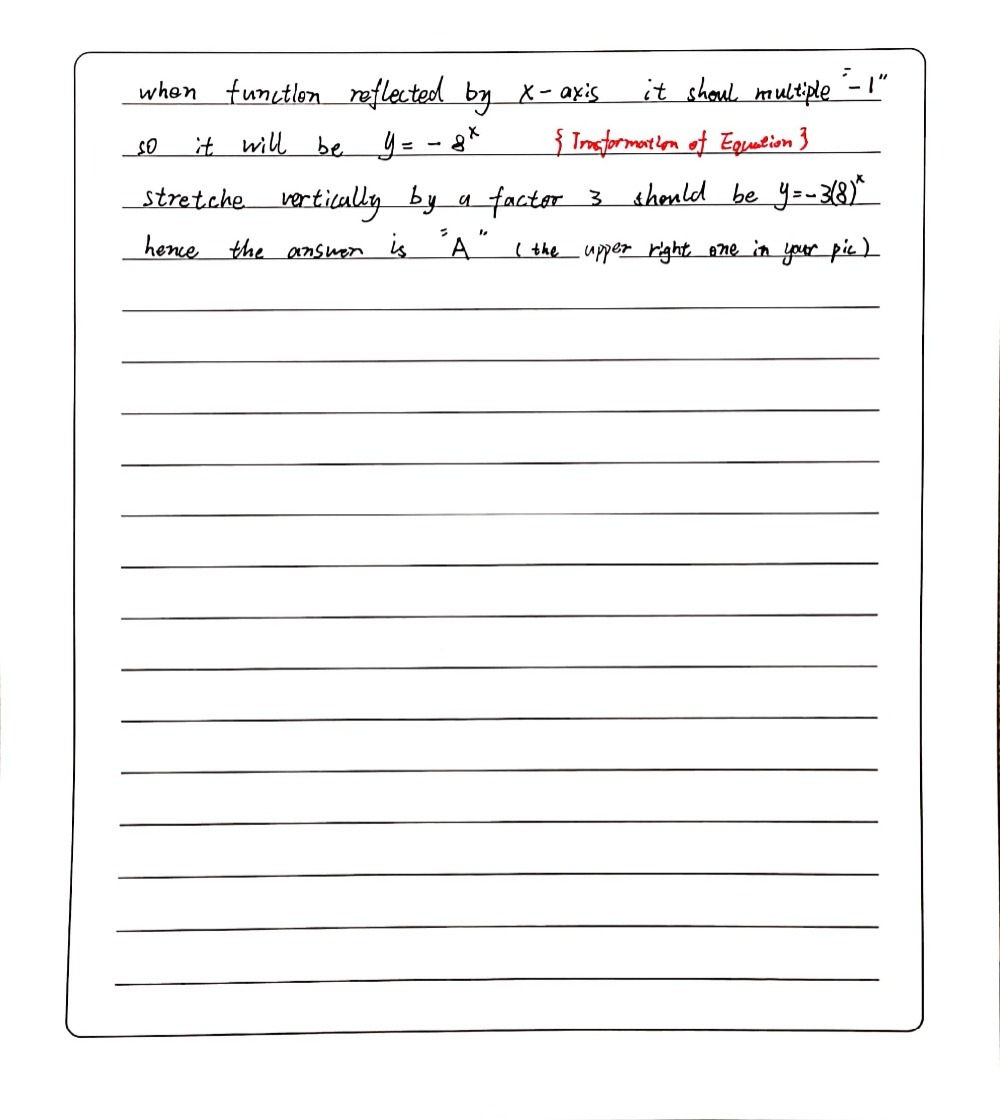 when function reflected by x-axis it shoul multiple "-1"
so it will be y = - 8^x { Trasformation of Equation }
stretche vertically by a factor 3 should be y=-3(8)^x
hence the answer is "A" ( the upper right one in your pic )